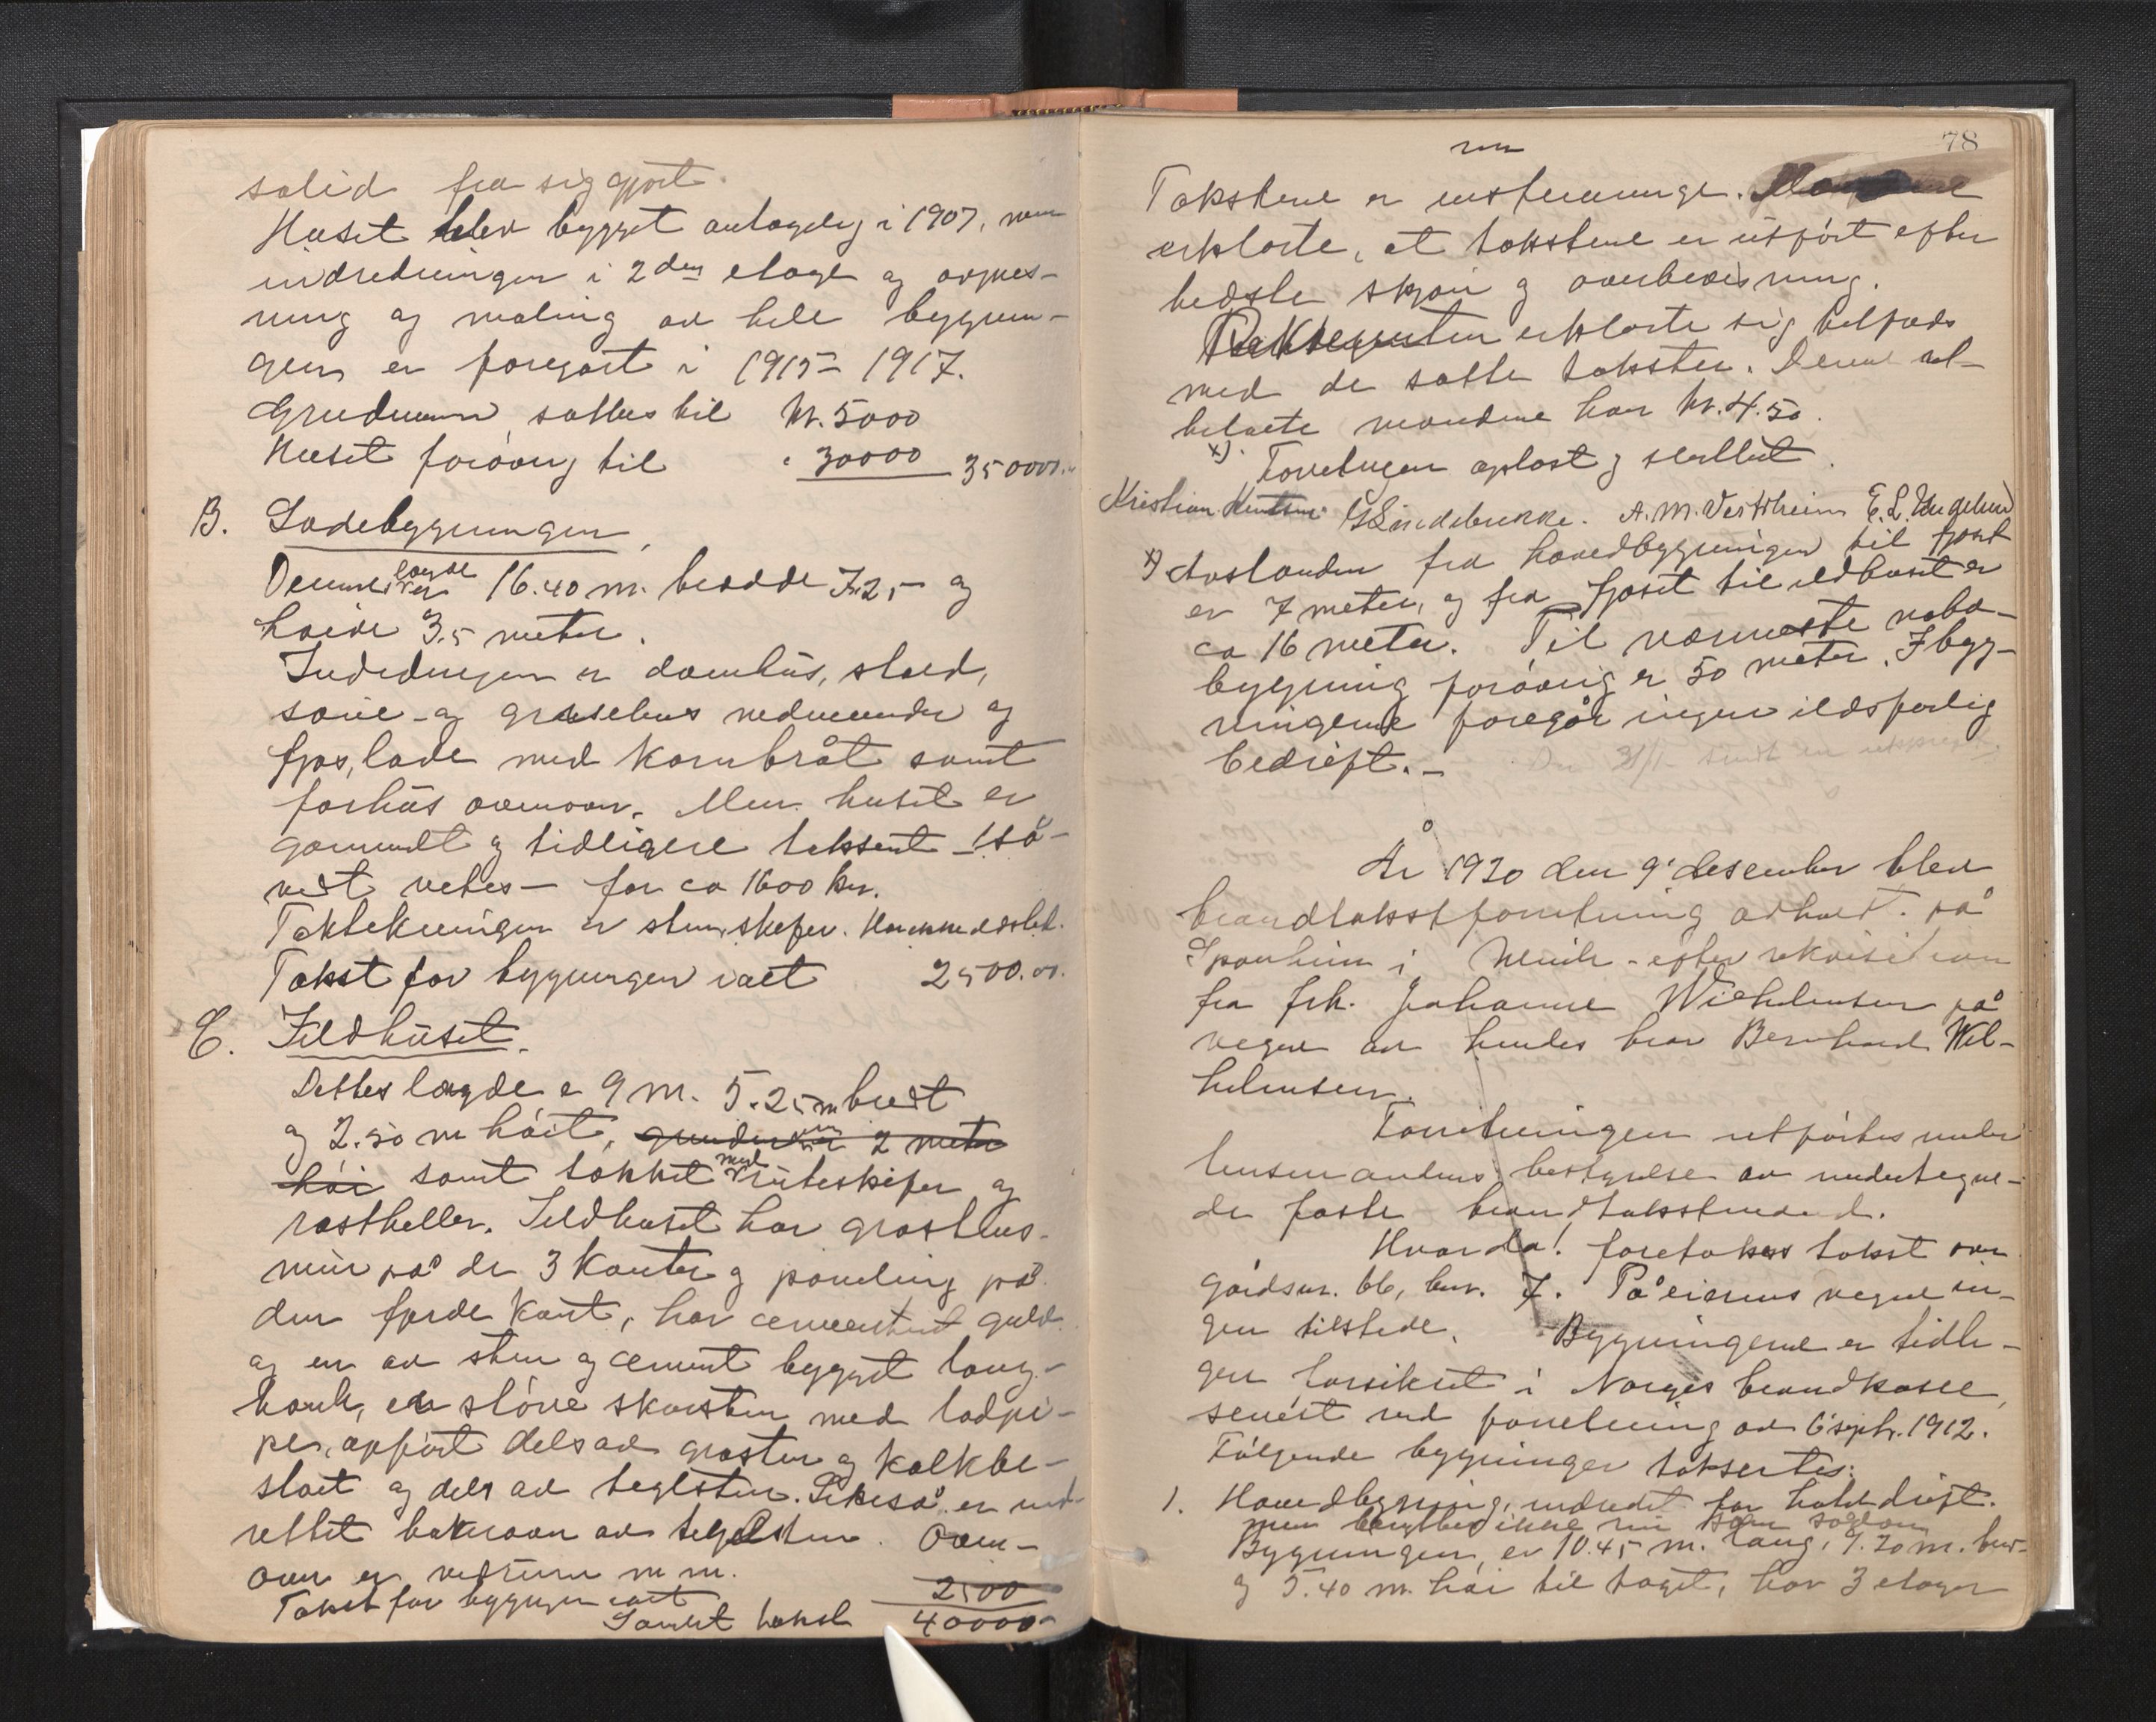 solid fra sig gjort.
Huset blev bygget antagelig i 1907, men
indredningen i 2den etage og avpus-
ning og maling av hele bygnin-
gen er foregåt i 1915-1917.
Grudmuren sattes til kr. 5000
Huset forøvrig til " 30000 35000.00
B. Ladebygningen.
Dennes længde er 16.40 m. bredde 7.25 og
høide 3.5 meter.
Indredningen er damhus, stald,
saue- og grisehus nedenunder og
fjøs, lade med kornbråt samt
forhus ovenover. Men huset er
gammelt og tidligere taksert - så-
vidt vites - for ca 1600 kr.
Taktekningen er sten, skifer. Har ikke ildsted.
Takst for bygningen i alt 2500.00.
C. Ildhuset.
Dettes længde er 9 m. 5.25 m bredt
og 2.50 m høit, grunden er 2 meter
høi samt tækket med ruteskifer og
rastheller. Ildhuset har gråstens-
mur på de 3 kanter og paneling på
den fjerde kant, har cementert gulv
og en av sten og cement bygget
bank, en større skorsten med lodpi-
pe, opført dels av gråsten og kalkbe-
slaat og dels av teglsten. Likeså er ind-
rettet bakerovn av teglsten. Oven-
over er vedrum m m.
Takst for bygningen i alt 2500
Samlet takst 40000-
78
Takstene er enstemmige. Mændene
erklærte, at takstene er utført efter
bedste skjøn og overbevisning.
Rekvirenten erklærte sig tilfreds
med de satte takster. Denne ut-
betalte mændene har kr. 4.50.
x). Forretningen oplæst og sluttet.
Kristian Knutsen G Lindebrekke. A. M. Vestrheim E. L. Ungelund
x) Avstanden fra hovedbygningen til fjøset
er 7 meter, og fra fjøset til ildhuset er
ca 16 meter. Til nærmeste nabo-
bygning forøvrig er 50 meter. I byg-
ningene foregår ingen ildsfarlig
bedrift. -
År 1920 den 9' desember blev
brandtakstforretning avholdt på
Spånheim i Ulvik - efter rekvisition
fra frk. Johanne Wilhelmsen på
vegne av hendes bror Bernhard Wil-
helmsen.
Forretningen utførtes under
lensmandens bestyrelse av undertegne-
de faste brandtakstmænd.
Hvorda! foretokes takst over
gårdsnr. 66, bnr. 7. På eierens vegne in-
gen tilstede. Bygningene er tidli-
gere forsikret i Norges brandkasse,
senest ved forretning av 6 sept. 1912.
Følgende bygninger taksertes:
1. Hovedbygning, indredet for hoteldrift.
men benyttes ikke nu som sådan
Bygningen er 10.45 m. lang, 9.20 m. bred
og 5.40 m. høi til taget, har 3 etager